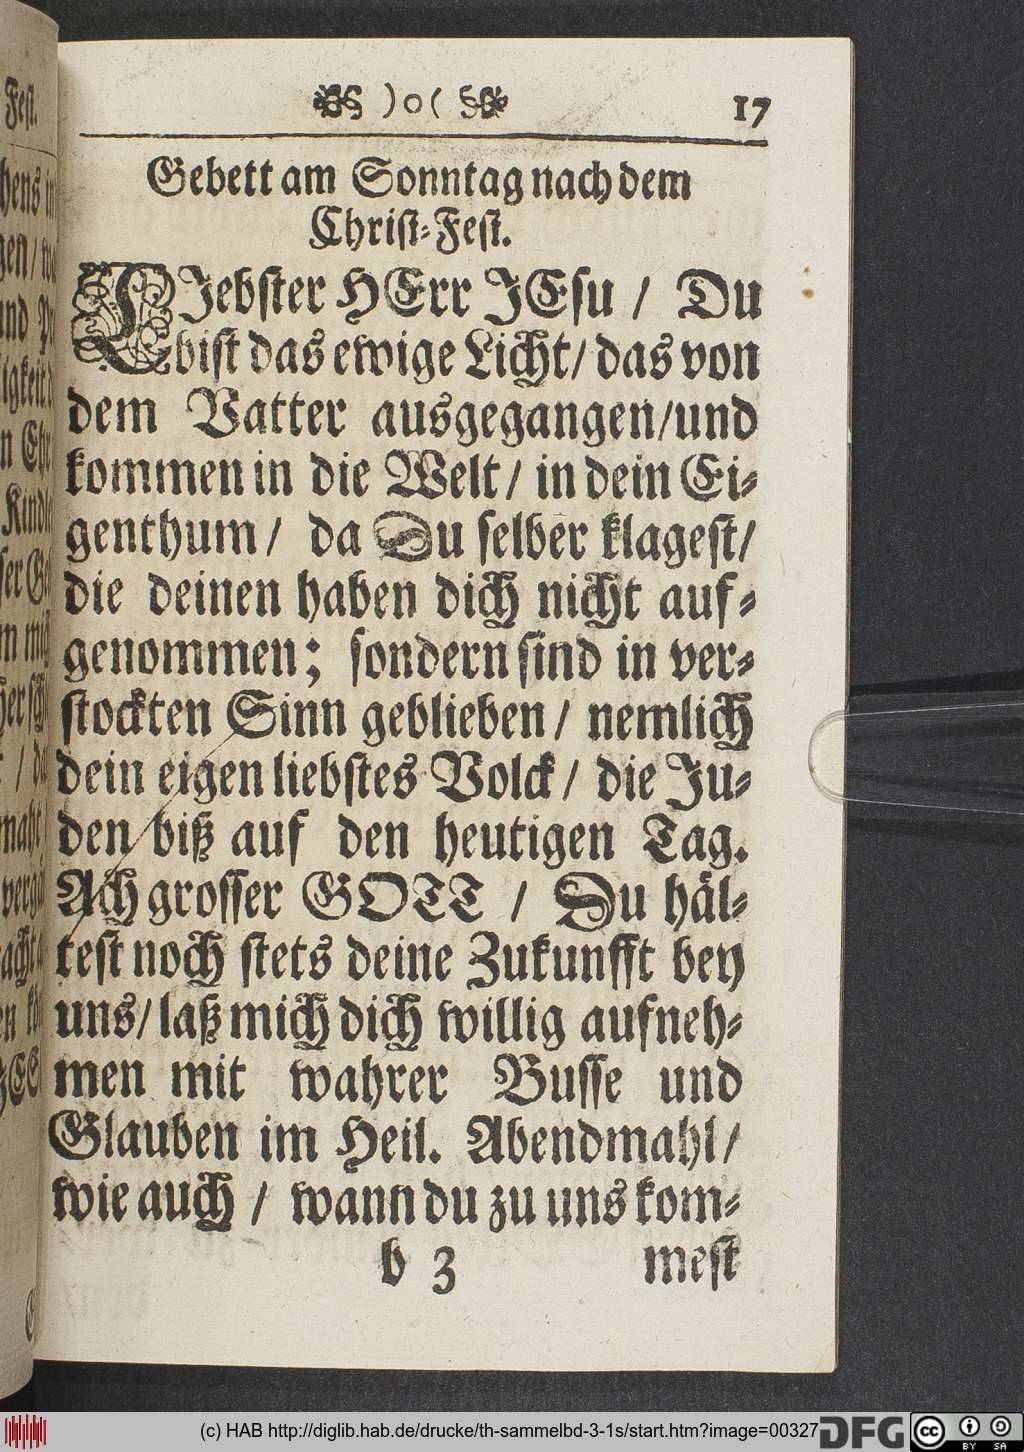 )o( 17
Gebett am Sonntag nach dem
Christ-Fest.
LIebster HErr JEsu / Du
bist das ewige Licht / das von
dem Vatter ausgegangen / und
kommen in die Welt / in dein Ei-
genthum / da Du selber klagest /
die deinen haben dich nicht auf-
genommen; sondern sind in ver-
stockten Sinn geblieben / nemlich
dein eigen liebstes Volck / die Ju-
den biß auf den heutigen Tag.
Ach grosser GOTT / Du häl-
test noch stets deine Zukunfft bey
uns / laß mich dich willig aufneh-
men mit wahrer Busse und
Glauben im Heil. Abendmahl /
wie auch / wann du zu uns kom-
b 3 mest
(c) HAB http://diglib.hab.de/drucke/th-sammelbd-3-1s/start.htm?image=00327
DFG
cc BY SA